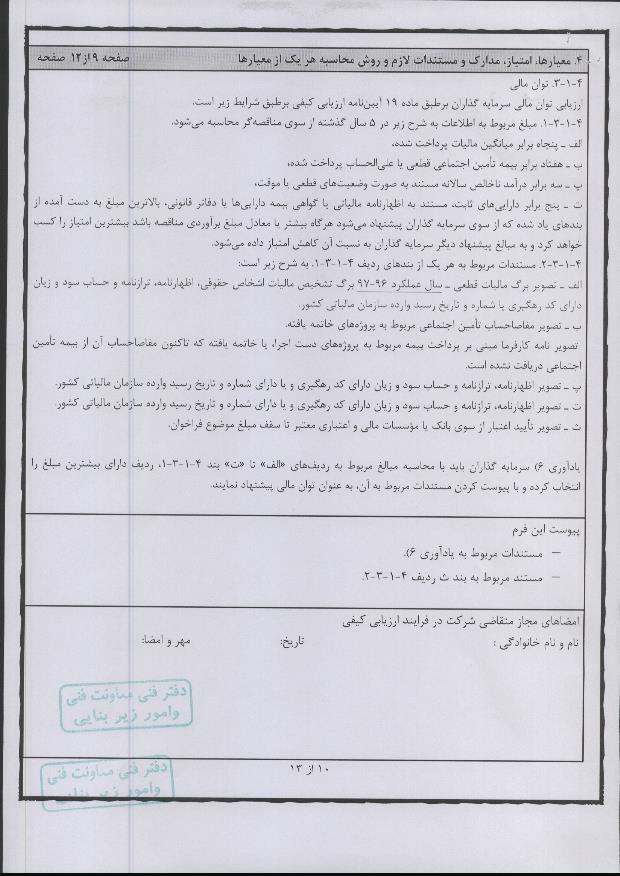 ۴. معیارها، امتیاز، مدارک و مستندات لازم و روش محاسبه هر یک از معیارها صفحه ۹ از ۱۲ صفحه
۴-۱-۳. توان مالی
ارزیابی توان مالی سرمایه گذاران برطبق ماده ۱۹ آیین‌نامه ارزیابی کیفی برطبق شرایط زیر است.
۴-۱-۳-۱. مبلغ مربوط به اطلاعات به شرح زیر در ۵ سال گذشته از سوی مناقصه‌گر محاسبه می‌شود.
الف - پنجاه برابر میانگین مالیات پرداخت شده،
ب - هفتاد برابر بیمه تأمین اجتماعی قطعی یا علی‌الحساب پرداخت شده،
پ - سه برابر درآمد ناخالص سالانه مستند به صورت وضعیت‌های قطعی یا موقت،
ت - پنج برابر دارایی‌های ثابت، مستند به اظهارنامه مالیاتی یا گواهی بیمه دارایی‌ها یا دفاتر قانونی، بالاترین مبلغ به دست آمده از
بندهای یاد شده که از سوی سرمایه گذاران پیشنهاد می‌شود هرگاه بیشتر یا معادل مبلغ برآوردی مناقصه باشد بیشترین امتیاز را کسب
خواهد کرد و به مبالغ پیشنهاد دیگر سرمایه گذاران به نسبت آن کاهش امتیاز داده می‌شود.
۴-۱-۳-۲. مستندات مربوط به هر یک از بندهای ردیف ۴-۱-۳-۱. به شرح زیر است:
الف - تصویر برگ مالیات قطعی - سال عملکرد ۹۶-۹۷ برگ تشخیص مالیات اشخاص حقوقی، اظهارنامه، ترازنامه و حساب سود و زیان
دارای کد رهگیری یا شماره و تاریخ رسید وارده سازمان مالیاتی کشور.
ب - تصویر مفاصاحساب تأمین اجتماعی مربوط به پروژه‌های خاتمه یافته.
تصویر نامه کارفرما مبنی بر پرداخت بیمه مربوط به پروژه‌های دست اجرا، یا خاتمه یافته که تاکنون مفاصاحساب آن از بیمه تأمین
اجتماعی دریافت نشده است.
پ - تصویر اظهارنامه، ترازنامه و حساب سود و زیان دارای کد رهگیری و یا دارای شماره و تاریخ رسید وارده سازمان مالیاتی کشور.
ت - تصویر اظهارنامه، ترازنامه و حساب سود و زیان دارای کد رهگیری و یا دارای شماره و تاریخ رسید وارده سازمان مالیاتی کشور.
ث - تصویر تأیید اعتبار از سوی بانک یا مؤسسات مالی و اعتباری معتبر تا سقف مبلغ موضوع فراخوان.
یادآوری ۶) سرمایه گذاران باید با محاسبه مبالغ مربوط به ردیف‌های «الف» تا «ت» بند ۴-۱-۳-۱، ردیف دارای بیشترین مبلغ را
انتخاب کرده و با پیوست کردن مستندات مربوط به آن، به عنوان توان مالی پیشنهاد نمایند.
پیوست این فرم
– مستندات مربوط به یادآوری ۶).
– مستند مربوط به بند ث ردیف ۴-۱-۳-۲.
امضاهای مجاز متقاضی شرکت در فرایند ارزیابی کیفی
نام و نام خانوادگی : تاریخ: مهر و امضا:
دفتر فنی معاونت فنی
وامور زیر بنایی
۱۰ از ۱۳
دفتر فنی معاونت فنی
وامور زیر بنایی